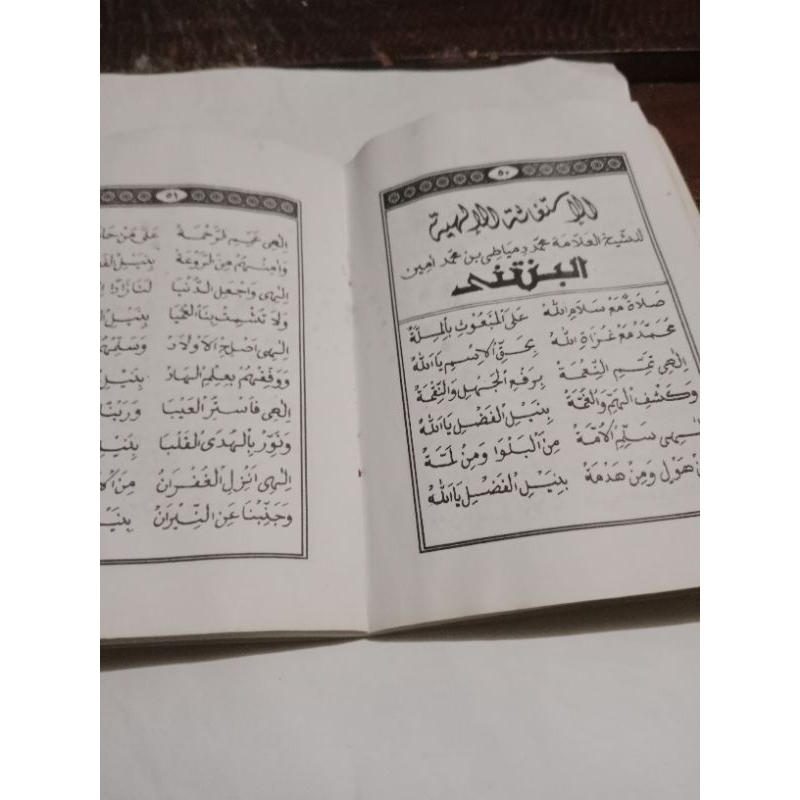 ٥٠
الإستغاثة الإلهية
للشيخ العلامة محمد دمياطي بن محمد امين
البنتنى
صَلَاةٌ مَعْ سَلَامِ اللّٰه عَلَى الْمَبْعُوْثِ بِالْمِلَّةْ
مُحَمَّدْ مَعْ غُزَاةِ اللّٰه بِحَقِّ الْاِسْمِ يَا اَللّٰهُ
اِلٰهِى تَمِّمِ النِّعْمَةْ بِرَفْعِ الْجَهْلِ وَالنِّقْمَةْ
وَكَشْفِ الْهَمِّ وَالْغُمَّةْ بِنَيْلِ الْفَضْلِ يَا اَللّٰهُ
اِلٰهِى سَلِّمِ الْاُمَّةْ مِنَ الْبَلْوَا وَمِنْ لَمَّةْ
هَوْلٍ وَمِنْ هَدْمَةْ بِنَيْلِ الْفَضْلِ يَا اَللّٰهُ
٥١
اِلٰهِى عَمِّمِ الرَّحْمَةْ عَلَى مَنْ
وَاٰمِنْهُمْ مِنَ الرَّوْعَةْ بِنَيْلِ
اِلٰهِى وَاجْعَلِ الدُّنْيَا لَنَا
وَلَا تُشْمِتْ بِنَا بِنَيْلِ
اِلٰهِى اَصْلِحِ الْاَوْلَادْ
وَوَفِّقْهُمْ بِعِلْمِ الْهَادْ
اِلٰهِى فَاسْتُرِ الْعَيْبَا
وَنَوِّرْ بِالْهُدَى الْقَلْبَا
اِلٰهِى اَنْزِلِ الْغُفْرَانْ
وَجَنِّبْنَا عَنِ النِّيْرَانْ